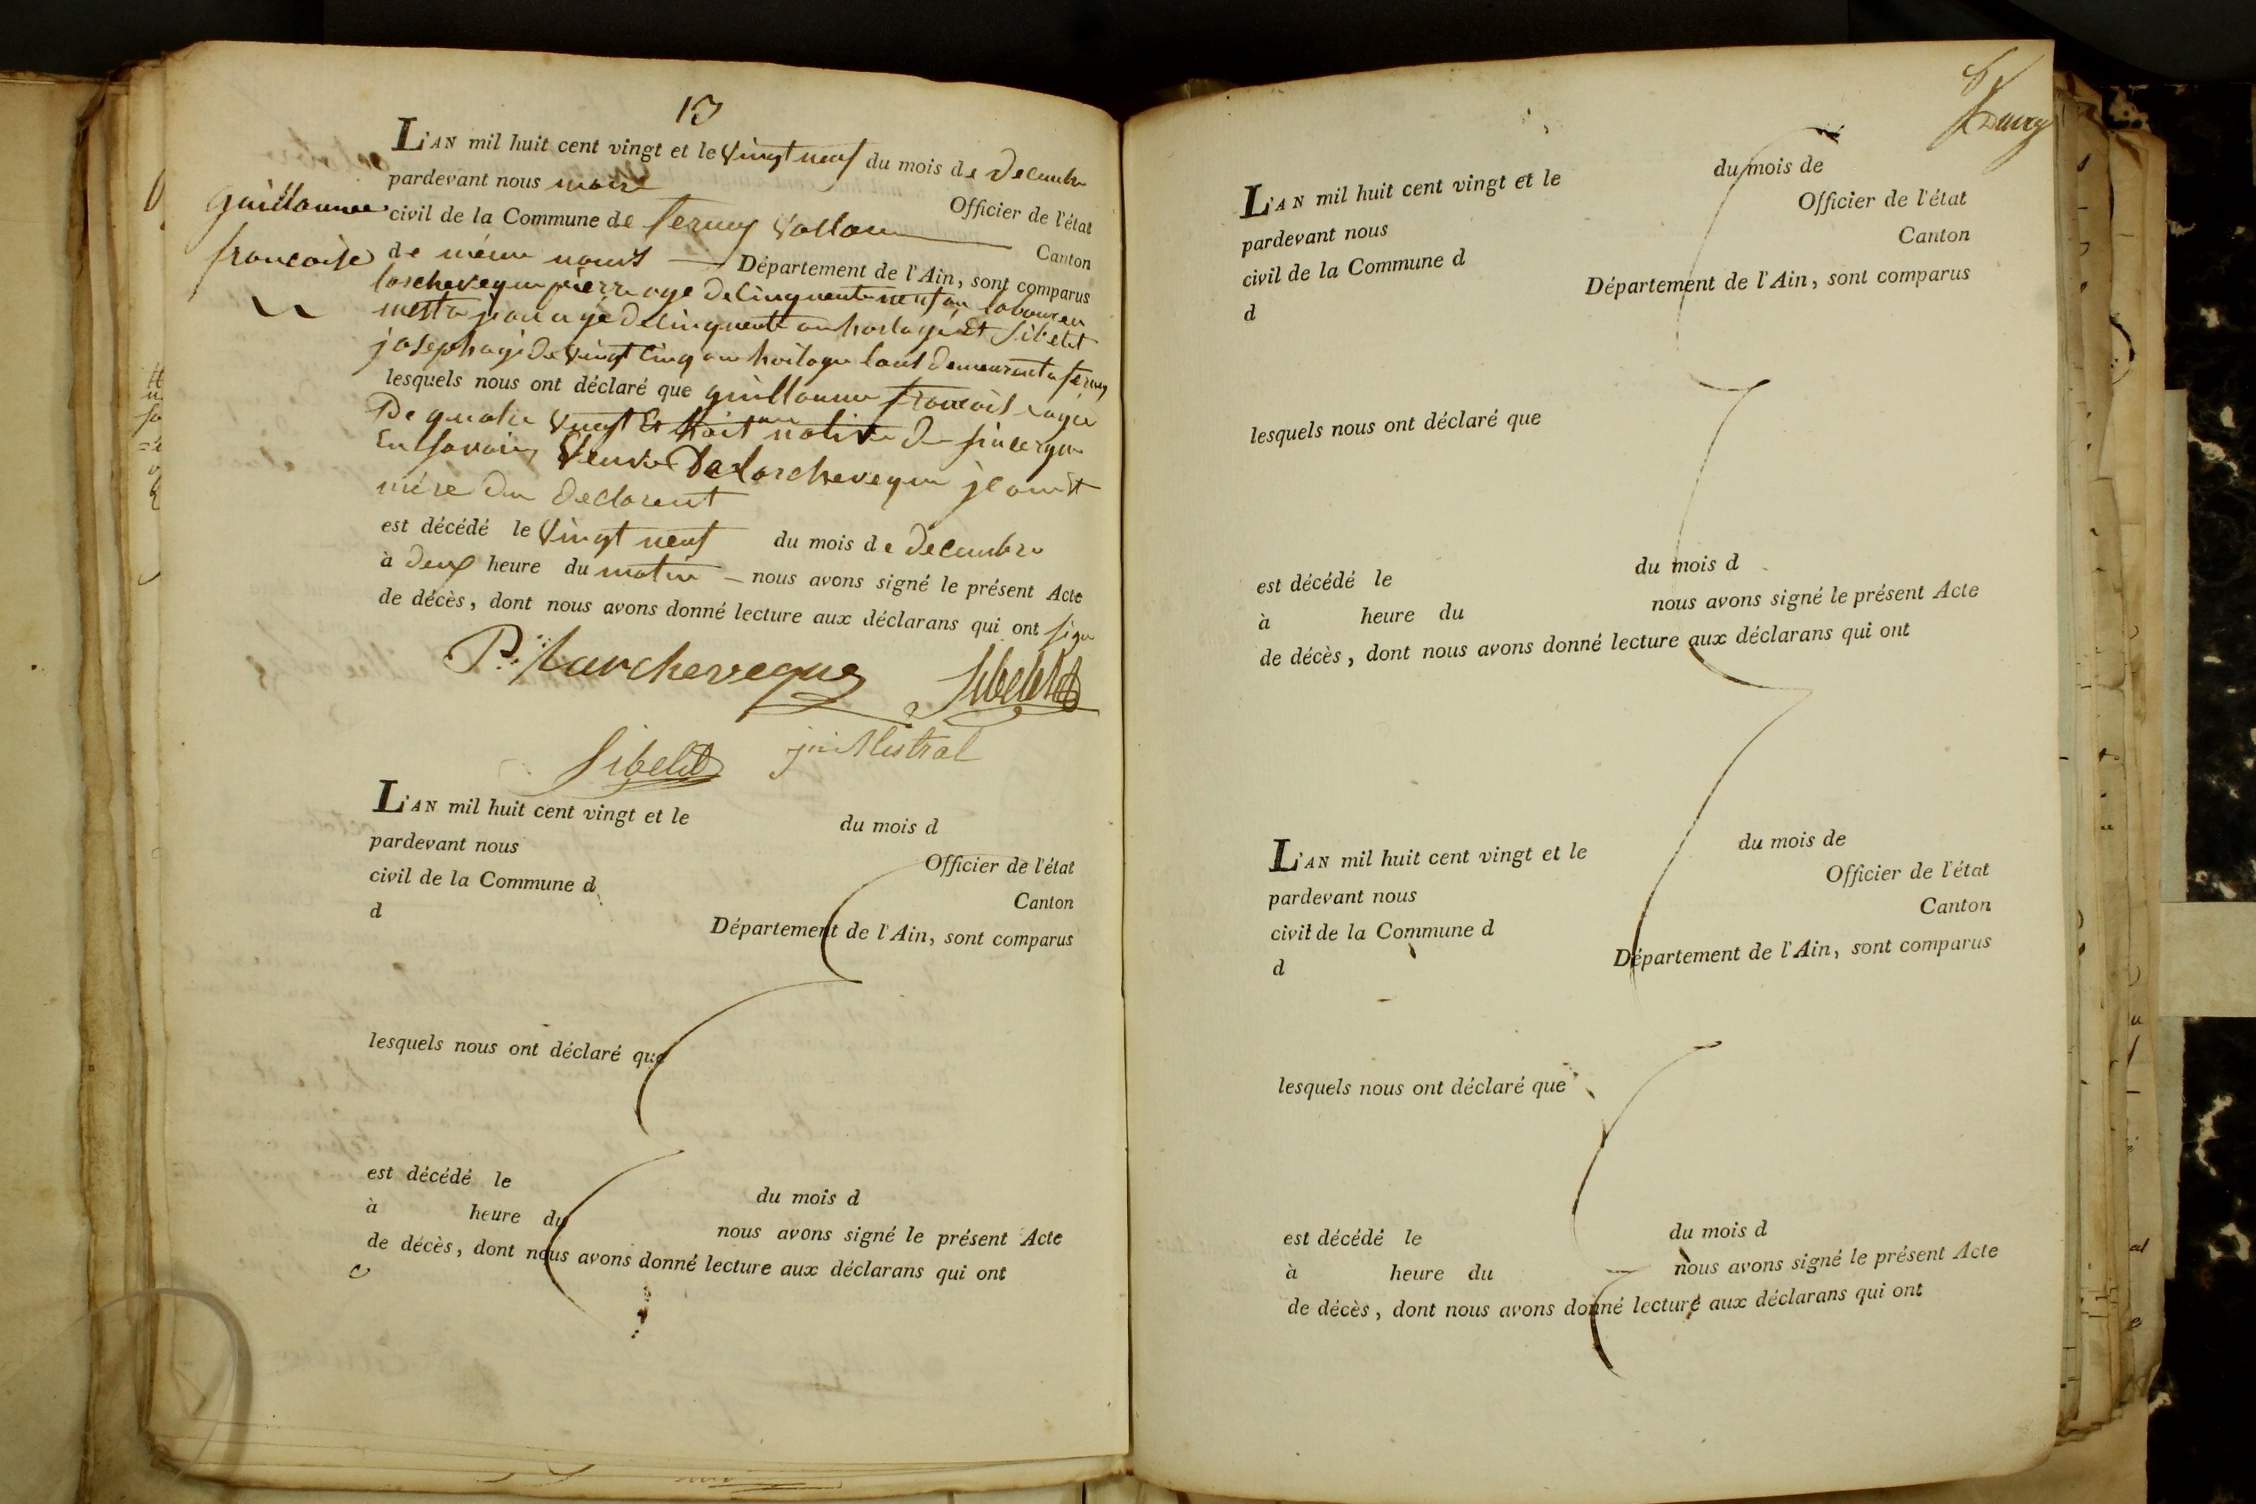 13
L'AN mil huit cent vingt et le vingt neuf du mois de Decembre
pardevant nous maire Officier de l'état
Guillaumee civil de la Commune de ferney Voltaire Canton
francoise de même nom Département de l'Ain, sont comparus
larcheveque pierre age de Cinquente neuf an laboureu
age de Cinquente an horloger Et Sibelit
joseph agé de vingt Cinq an horloger tout demeurant a ferney
lesquels nous ont déclaré que guillaume francois agée
De quatre vingt Et huit an native de
En Savoie, Veuve De larcheveque jeam Et
mère du declarent
est décédé le Vingt neuf du mois de decembre
à deux heure du matin nous avons signé le présent Acte
de décès, dont nous avons donné lecture aux déclarans qui ont signe
P. Larcheveque Sibelit
Sibelit Mistral
L'AN mil huit cent vingt et le du mois d
pardevant nous Officier de l'état
civil de la Commune d Canton
d Département de l'Ain, sont comparus
lesquels nous ont déclaré que
est décédé le du mois d
à heure du nous avons signé le présent Acte
de décès, dont nous avons donné lecture aux déclarans qui ont
L'AN mil huit cent vingt et le du mois de
pardevant nous Officier de l'état
civil de la Commune d Canton
d Département de l'Ain, sont comparus
lesquels nous ont déclaré que
est décédé le du mois d
à heure du nous avons signé le présent Acte
de décès, dont nous avons donné lecture aux déclarans qui ont
L'AN mil huit cent vingt et le du mois de
pardevant nous Officier de l'état
civil de la Commune d Canton
d Département de l'Ain, sont comparus
lesquels nous ont déclaré que
est décédé le du mois d
à heure du nous avons signé le présent Acte
de décès, dont nous avons donné lecture aux déclarans qui ont